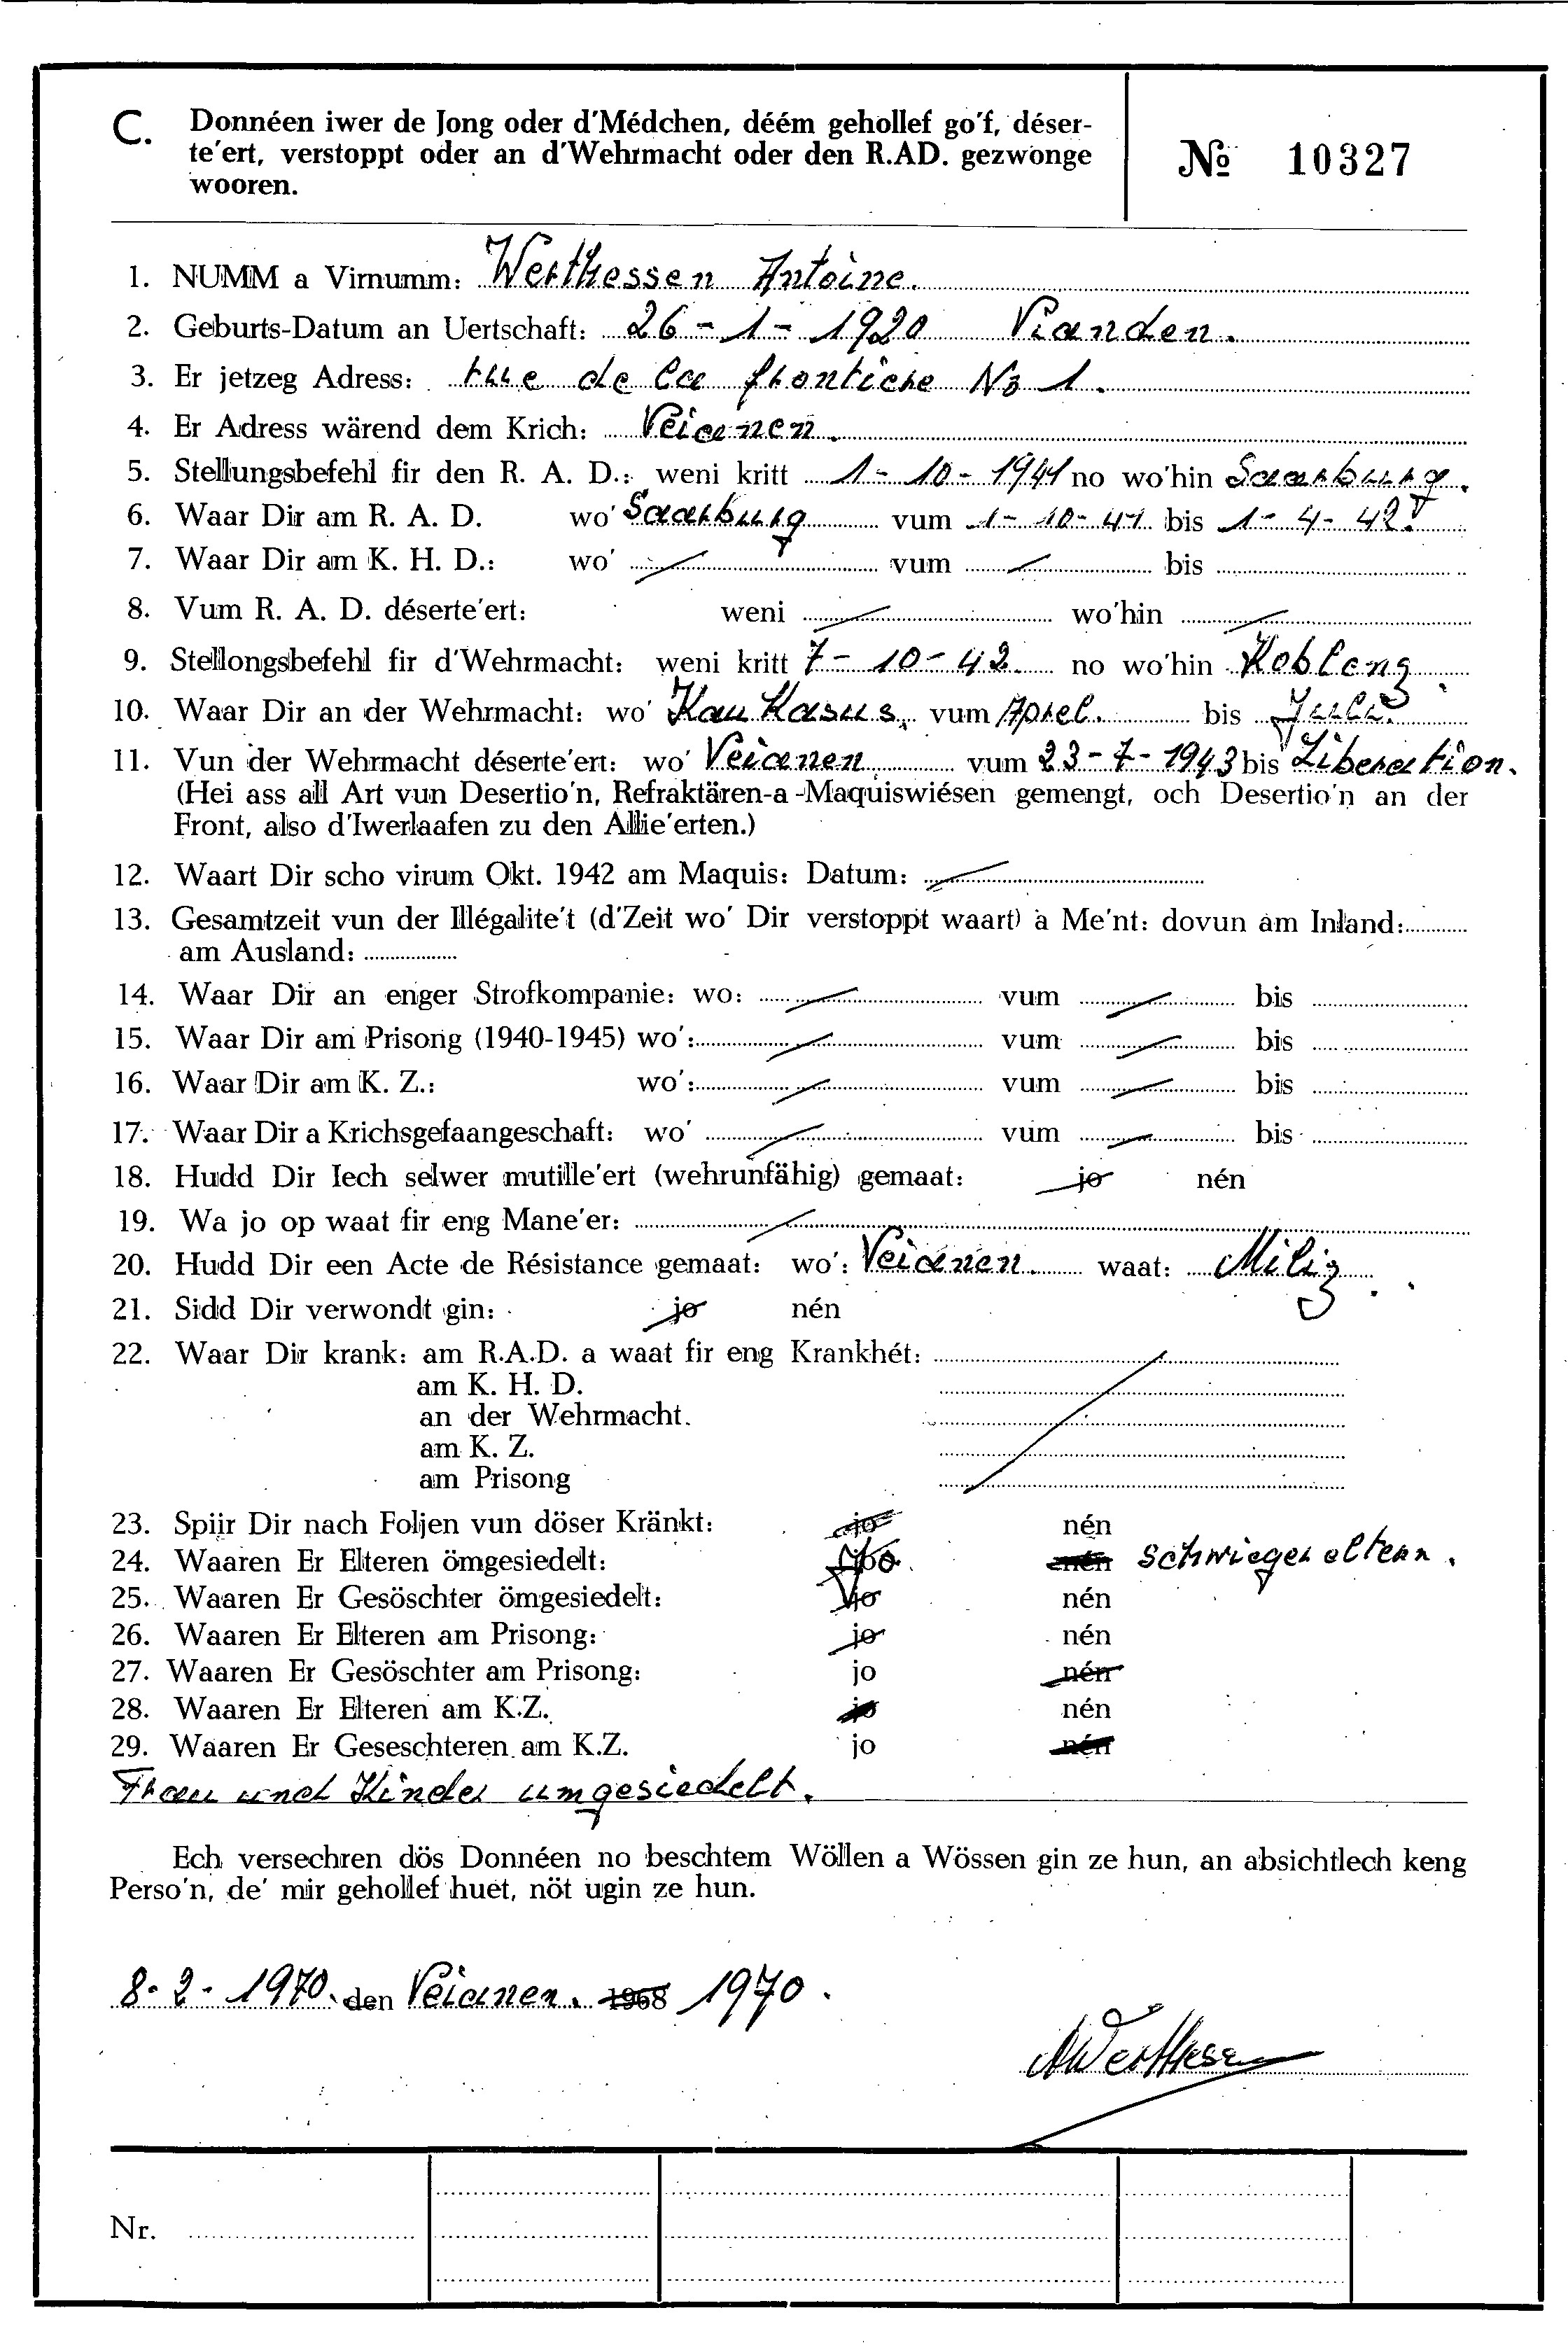 C. Donnéen iwer de Jong oder d'Médchen, déém gehollef go'f, déser-
te'ert, verstoppt oder an d'Wehrmacht oder den R.AD. gezwonge
wooren.
№ 10327
1. NUMM a Virnumm: Werthessen Antoine.
2. Geburts-Datum an Uertschaft: 26-1-1920 Vianden.
3. Er jetzeg Adress: rue de la frontiere No 1.
4. Er Adress wärend dem Krich: Veianen.
5. Stellungsbefehl fir den R. A. D.: weni kritt 1-10-1941 no wo'hin Saarburg.
6. Waar Dir am R. A. D. wo' Saarburg vum 1-10-41 bis 1-4-42
7. Waar Dir am K. H. D.: wo' vum bis
8. Vum R. A. D. déserte'ert: weni wo'hin
9. Stellongsbefehl fir d'Wehrmacht: weni kritt 7-10-42 no wo'hin Koblenz.
10. Waar Dir an der Wehrmacht: wo' Kaukasus, vum Aprel. bis Juli
11. Vun der Wehrmacht déserte'ert: wo' Veianen vum 23-7-1943 bis Liberation.
(Hei ass all Art vun Desertio'n, Refraktären-a-Maquiswiésen gemengt, och Desertio'n an der
Front, also d'Iwerlaafen zu den Allie'erten.)
12. Waart Dir scho virum Okt. 1942 am Maquis: Datum:
13. Gesamtzeit vun der Illégalite't (d'Zeit wo' Dir verstoppt waart) a Me'nt: dovun am Inland:
am Ausland:
14. Waar Dir an enger Strofkompanie: wo: vum bis
15. Waar Dir am Prisong (1940-1945) wo': vum bis
16. Waar Dir am K. Z.: wo': vum bis
17. Waar Dir a Krichsgefaangeschaft: wo' vum bis
18. Hudd Dir Iech selwer mutille'ert (wehrunfähig) gemaat: jo nén
19. Wa jo op waat fir eng Mane'er:
20. Hudd Dir een Acte de Résistance gemaat: wo': Veianen. waat: Miliz.
21. Sidd Dir verwondt gin: jo nén
22. Waar Dir krank: am R.A.D. a waat fir eng Krankhét:
am K. H. D.
an der Wehrmacht.
am K. Z.
am Prisong
23. Spiir Dir nach Foljen vun döser Kränkt: jo nén
24. Waaren Er Elteren ömgesiedelt: jo nén Schwiegereltern.
25. Waaren Er Gesöschter ömgesiedelt: jo nén
26. Waaren Er Elteren am Prisong: jo nén
27. Waaren Er Gesöschter am Prisong: jo nén
28. Waaren Er Elteren am K.Z. jo nén
29. Waaren Er Geseschteren am K.Z. jo nén
Frau und Kinder umgesiedelt.
Ech versechren dös Donnéen no beschtem Wöllen a Wössen gin ze hun, an absichtlech keng
Perso'n, de' mir gehollef huet, nöt ugin ze hun.
8-2-1970. den Veianen. 1968 1970.
AWerthessen
Nr.